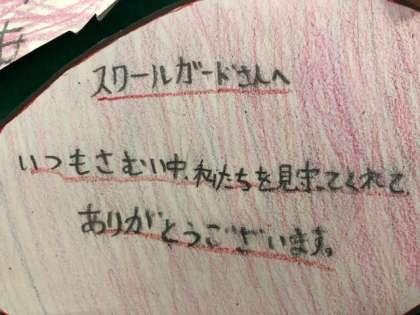 スクールガードさんへ
いつもさむい中、私たちを見守ってくれて
ありがとうございます。